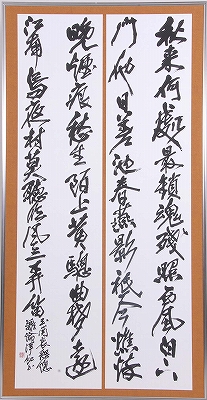 秋来何處最銷魂殘照西風白下
門他日差池春燕影祇今憔悴
晩煙痕愁生陌上黄驄曲夢遠
江南烏夜村莫聽臨風三弄笛
玉関哀怨總
難論